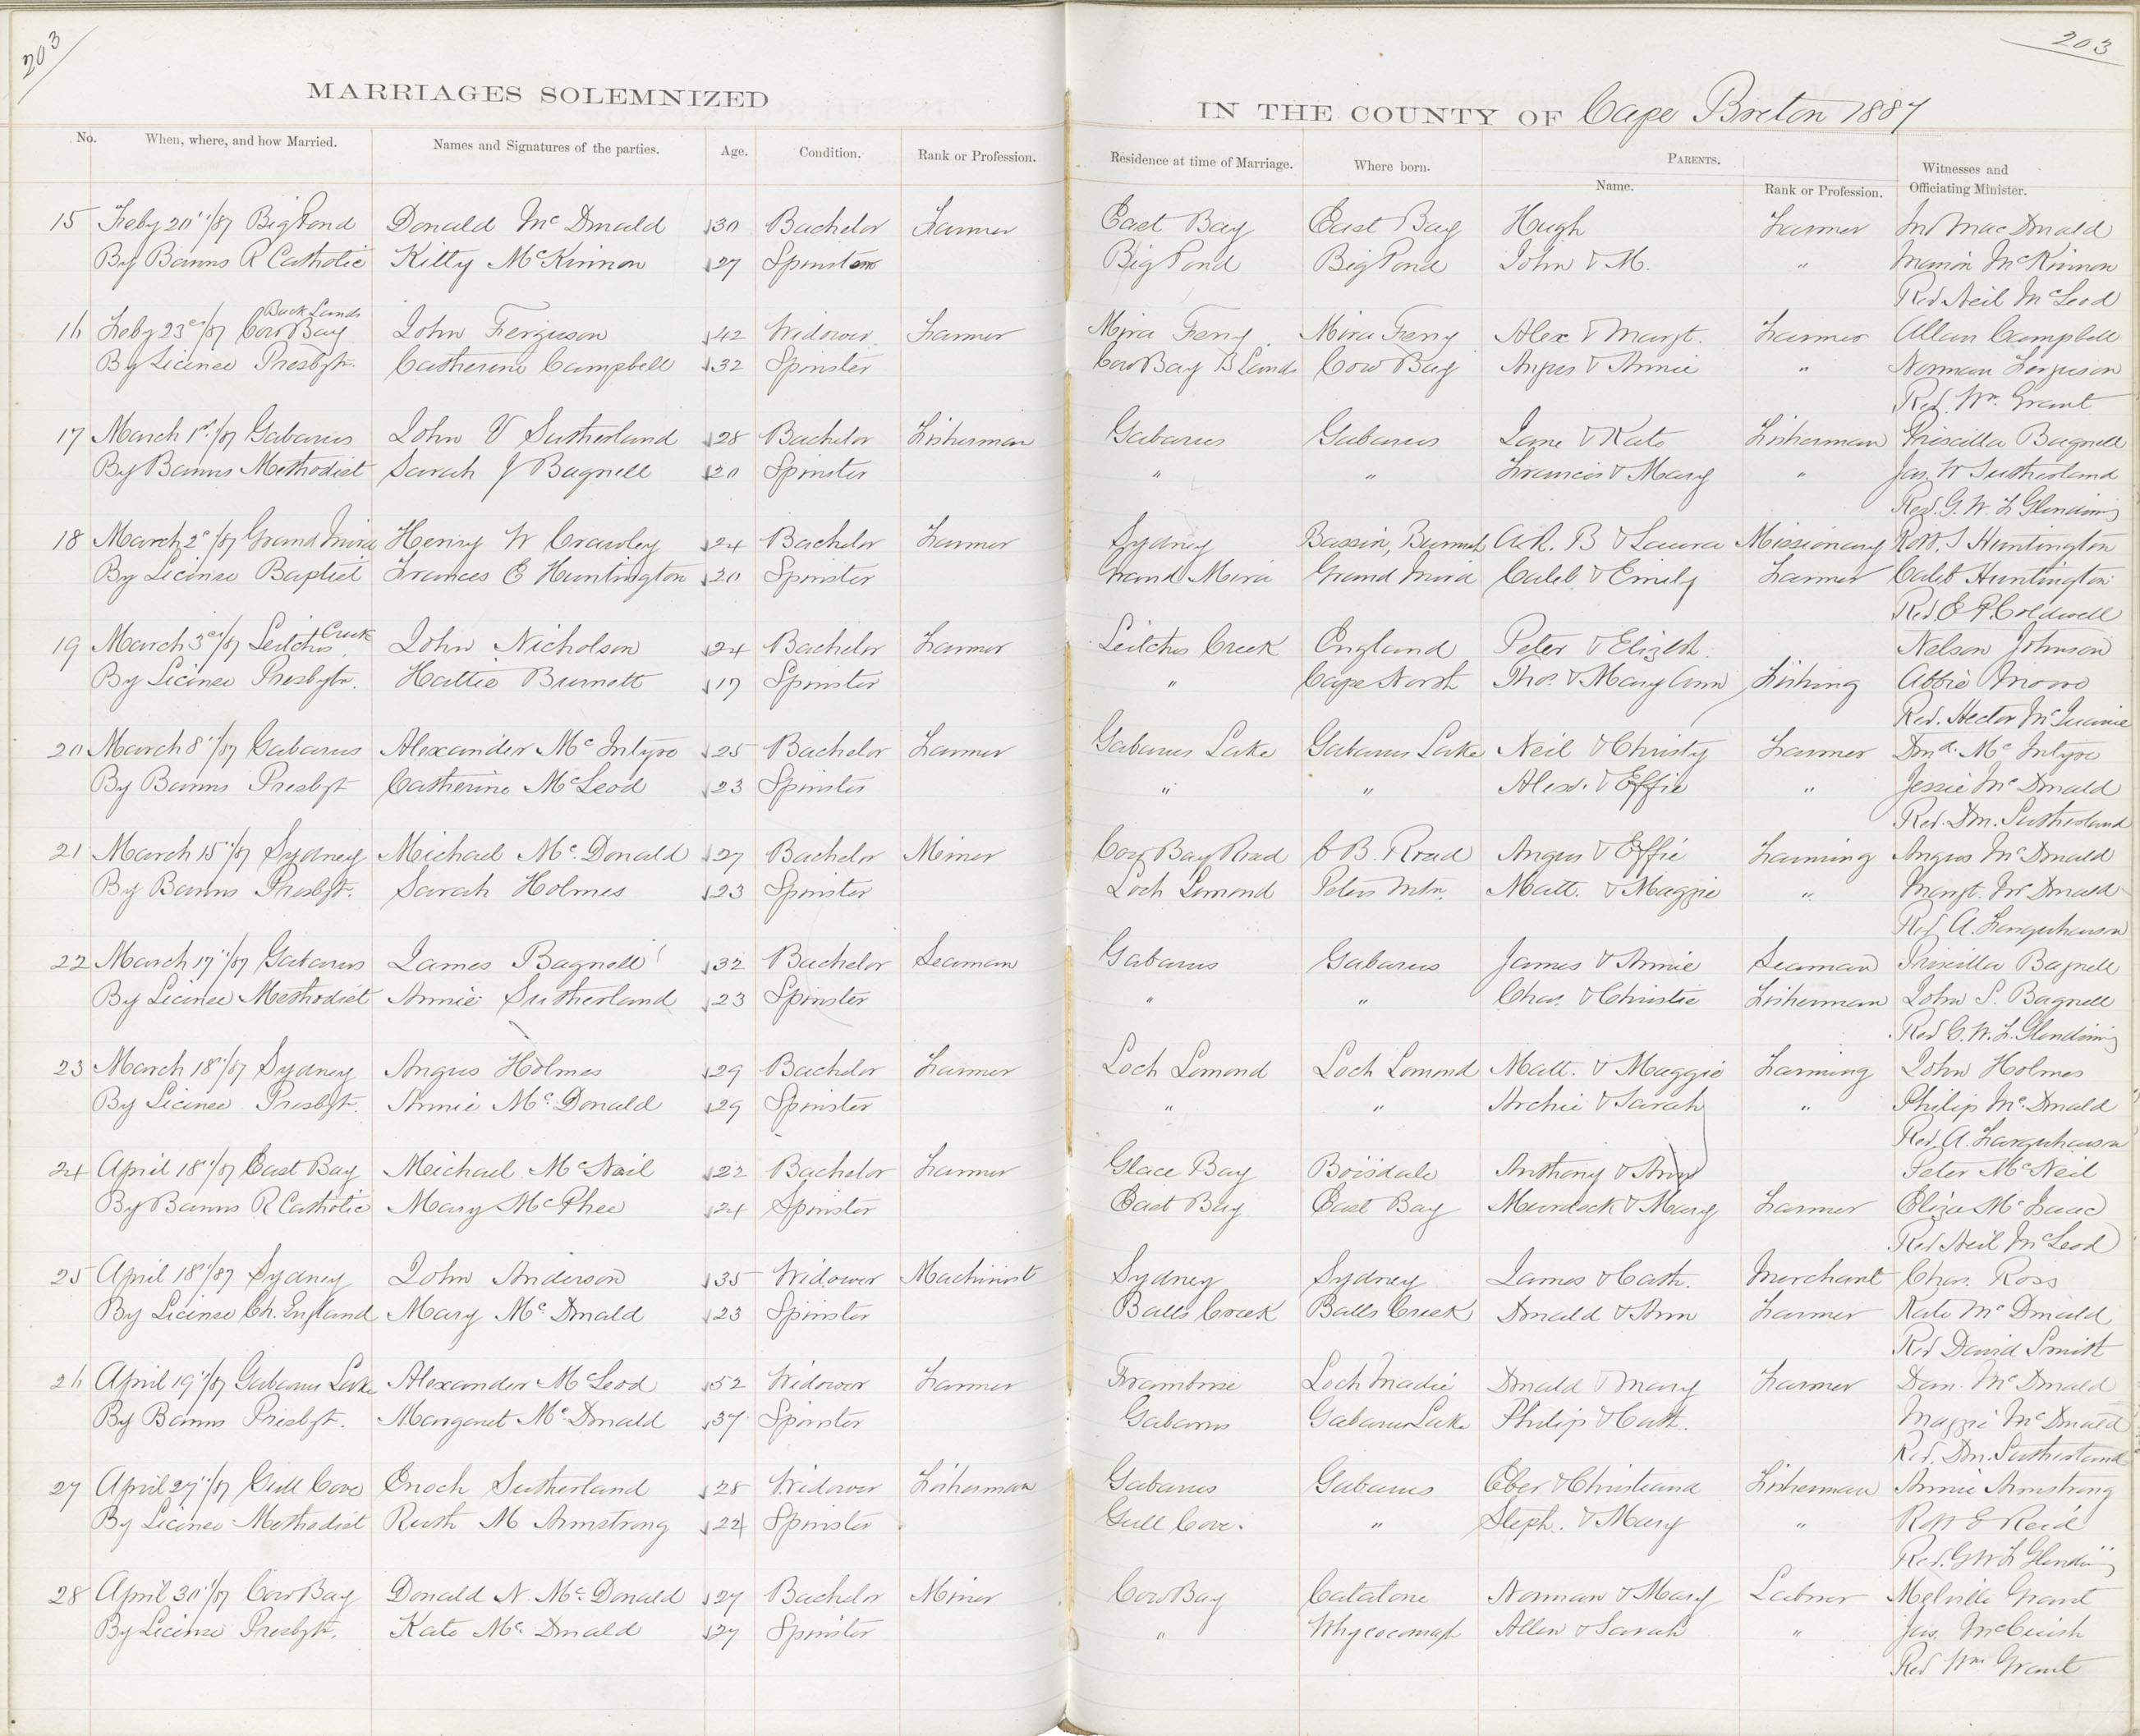 203
203
MARRIAGES SOLEMNIZED
IN THE COUNTY OF Cape Breton 1887
No. When, where, and how Married. Names and Signatures of the parties. Age. Condition. Rank or Profession. Residence at time of Marriage. Where born. PARENTS. Name. Rank or Profession. Witnesses and Officiating Minister.
15 Feby 20"/87 Big Pond Donald Mc Donald 30 Bachelor Farmer East Bay East Bay Hugh Farmer Mac Donald
By Banns R Catholic Kitty McKinnon 27 Spinster Big Pond Big Pond John & M. " McKinnon
Rev Neil McLeod
Back Lands
16 Feby 23rd/87 Cow Bay John Ferguson 42 Widower Farmer Mira Ferry Mira Ferry Alex & Margt. Farmer Allan Campbell
By Licence Presbytr. Catherine Campbell 32 Spinster Cow Bay B Lands Cow Bay Angus & Annie " Norman Ferguson
Rev. Wm. Grant
17 March 1st/87 Gabarus John V Sutherland 28 Bachelor Fisherman Gabarus Gabarus & Kate Fisherman Priscilla Bagnell
By Banns Methodist Sarah J Bagnell 20 Spinster " " Francis & Mary " Jas. W Sutherland
Rev. G. W. F Glendining
18 March 2d/87 Grand Mira Henry W Crawley 24 Bachelor Farmer Sydney Bassin, Burmah A.R. B & Laura Missionary Robt. S Huntington
By License Baptist Frances E Huntington 20 Spinster Grand Mira Grand Mira Caleb & Emily Farmer Caleb Huntington
Rev. E P. Coldwell
19 March 3rd/87 Leitches Creek John Nicholson 24 Bachelor Farmer Leitches Creek England Peter & Elizth. Nelson Johnson
By Licence Presbytr. Hattie Burnett 17 Spinster " Cape North Thos. & Mary Ann Fishing Abbie
Rev. Hector
20 March 8"/87 Gabarus Alexander Mc Intyre 25 Bachelor Farmer Gabarus Lake Gabarus Lake Neil & Christy Farmer Dnd. Mc Intyre
By Banns Presbyt Catherine McLeod 23 Spinster " " Alex. & Effie " Jessie Mc Donald
Rev. Dn. Sutherland
21 March 15"/87 Sydney Michael Mc. Donald 27 Bachelor Miner Cow Bay Road C B. Road Angus & Effie Farming Angus Mc Donald
By Banns Presbyt. Sarah Holmes 23 Spinster Loch Lomond Peters Mtn. Matt. & Maggie " Margt. Mc Donald
Rev A. Farquharson
22 March 17"/87 Gabarus James Bagnell 32 Bachelor Seaman Gabarus Gabarus James & Annie Seaman Priscilla Bagnell
By Licence Methodist Annie Sutherland 23 Spinster " " Chas. & Christie Fisherman John S. Bagnell
Rev G. W. F. Glendining
23 March 18"/87 Sydney Angus Holmes 29 Bachelor Farmer Loch Lomond Loch Lomond Matt. & Maggie Farming John Holmes
By Licence Presbyt. Annie Mc. Donald 29 Spinster " " Archie & Sarah " Philip Mc. Donald
Rev. A. Farquharson
24 April 18"/87 East Bay Michael McNeil 22 Bachelor Farmer Glace Bay Boisdale Anthony & Ann Peter McNeil
By Banns R Catholic Mary McPhee 24 Spinster East Bay East Bay Murdock & Mary Farmer Eliza McIsaac
Rev Neil McLeod
25 April 18"/87 Sydney John Anderson 35 Widower Machinist Sydney Sydney James & Cath. Merchant Chas. Ross
By License Ch. England Mary Mc Donald 23 Spinster Balls Creek Balls Creek Donald & Ann Farmer Kate Mc Donald
Rev David Smith
26 April 19"/87 Gabarus Lake Alexander McLeod 52 Widower Farmer Framboise Loch Donald & Mary Farmer Dan. McDonald
By Banns Presbyt. Margaret Mc. Donald 37 Spinster Gabarus Gabarus Lake Philip & Cath. Maggie McDonald
Rev. Dn. Sutherland
27 April 27"/87 Gull Cove Enoch Sutherland 28 Widower Fisherman Gabarus Gabarus Eber & Christiana Fisherman Annie Armstrong
By Licence Methodist Ruth M Armstrong 22 Spinster Gull Cove. " Steph. & Mary " Robt E Reid
Rev. GW F Glendining
28 April 30"/87 Cow Bay Donald N. Mc. Donald 27 Bachelor Miner Cow Bay Catalone Norman & Mary Labour Melville Grant
By License Presbyt. Kate Mc. Donald 27 Spinster " Whycocomagh Allen & Sarah " Jas. McCuish
Rev Wm Grant